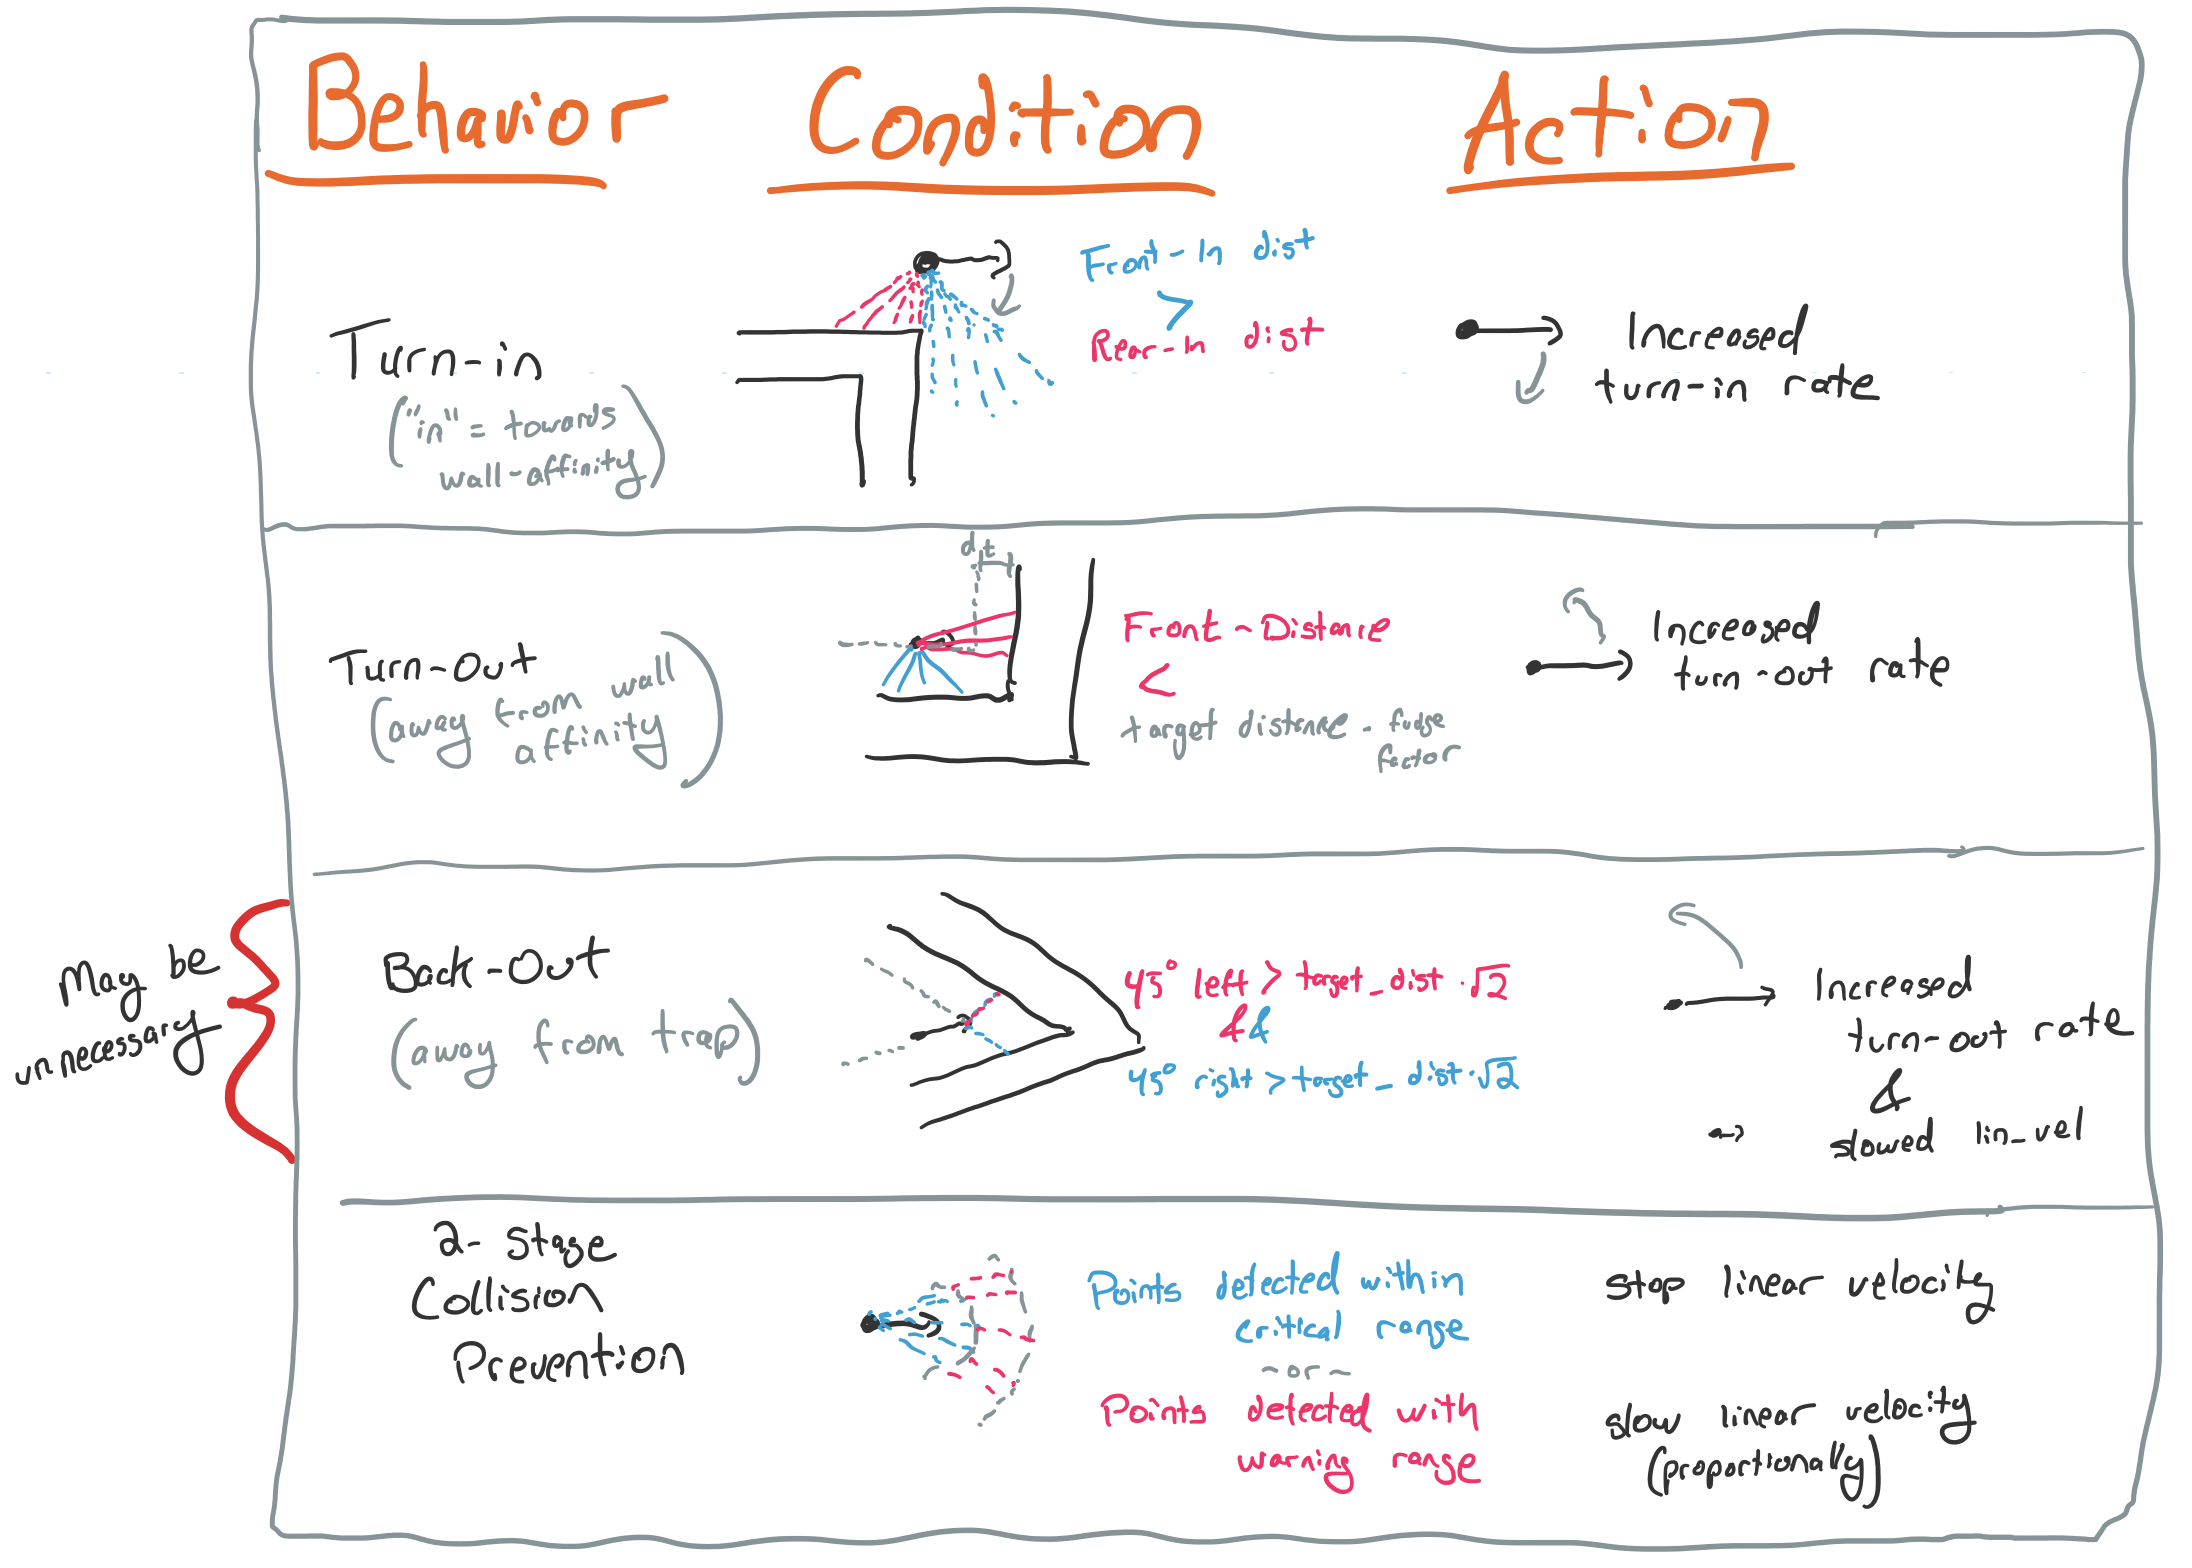 Behavior
Condition
Action
Turn-in
("in" = towards
wall-affinity)
Front-In dist
>
Rear-In dist
Increased
turn-in rate
Turn-Out
(away from wall
affinity)
dt
Front-Distance
<
target distance - fudge
factor
Increased
turn-out rate
May be
unnecessary
Back-Out
(away from trap)
45° left > target_dist · √2
&&
45° right > target_dist · √2
Increased
turn-out rate
&
slowed lin_vel
2-Stage
Collision
Prevention
Points detected within
critical range
-or-
Points detected with
warning range
stop linear velocity
slow linear velocity
(proportionally)